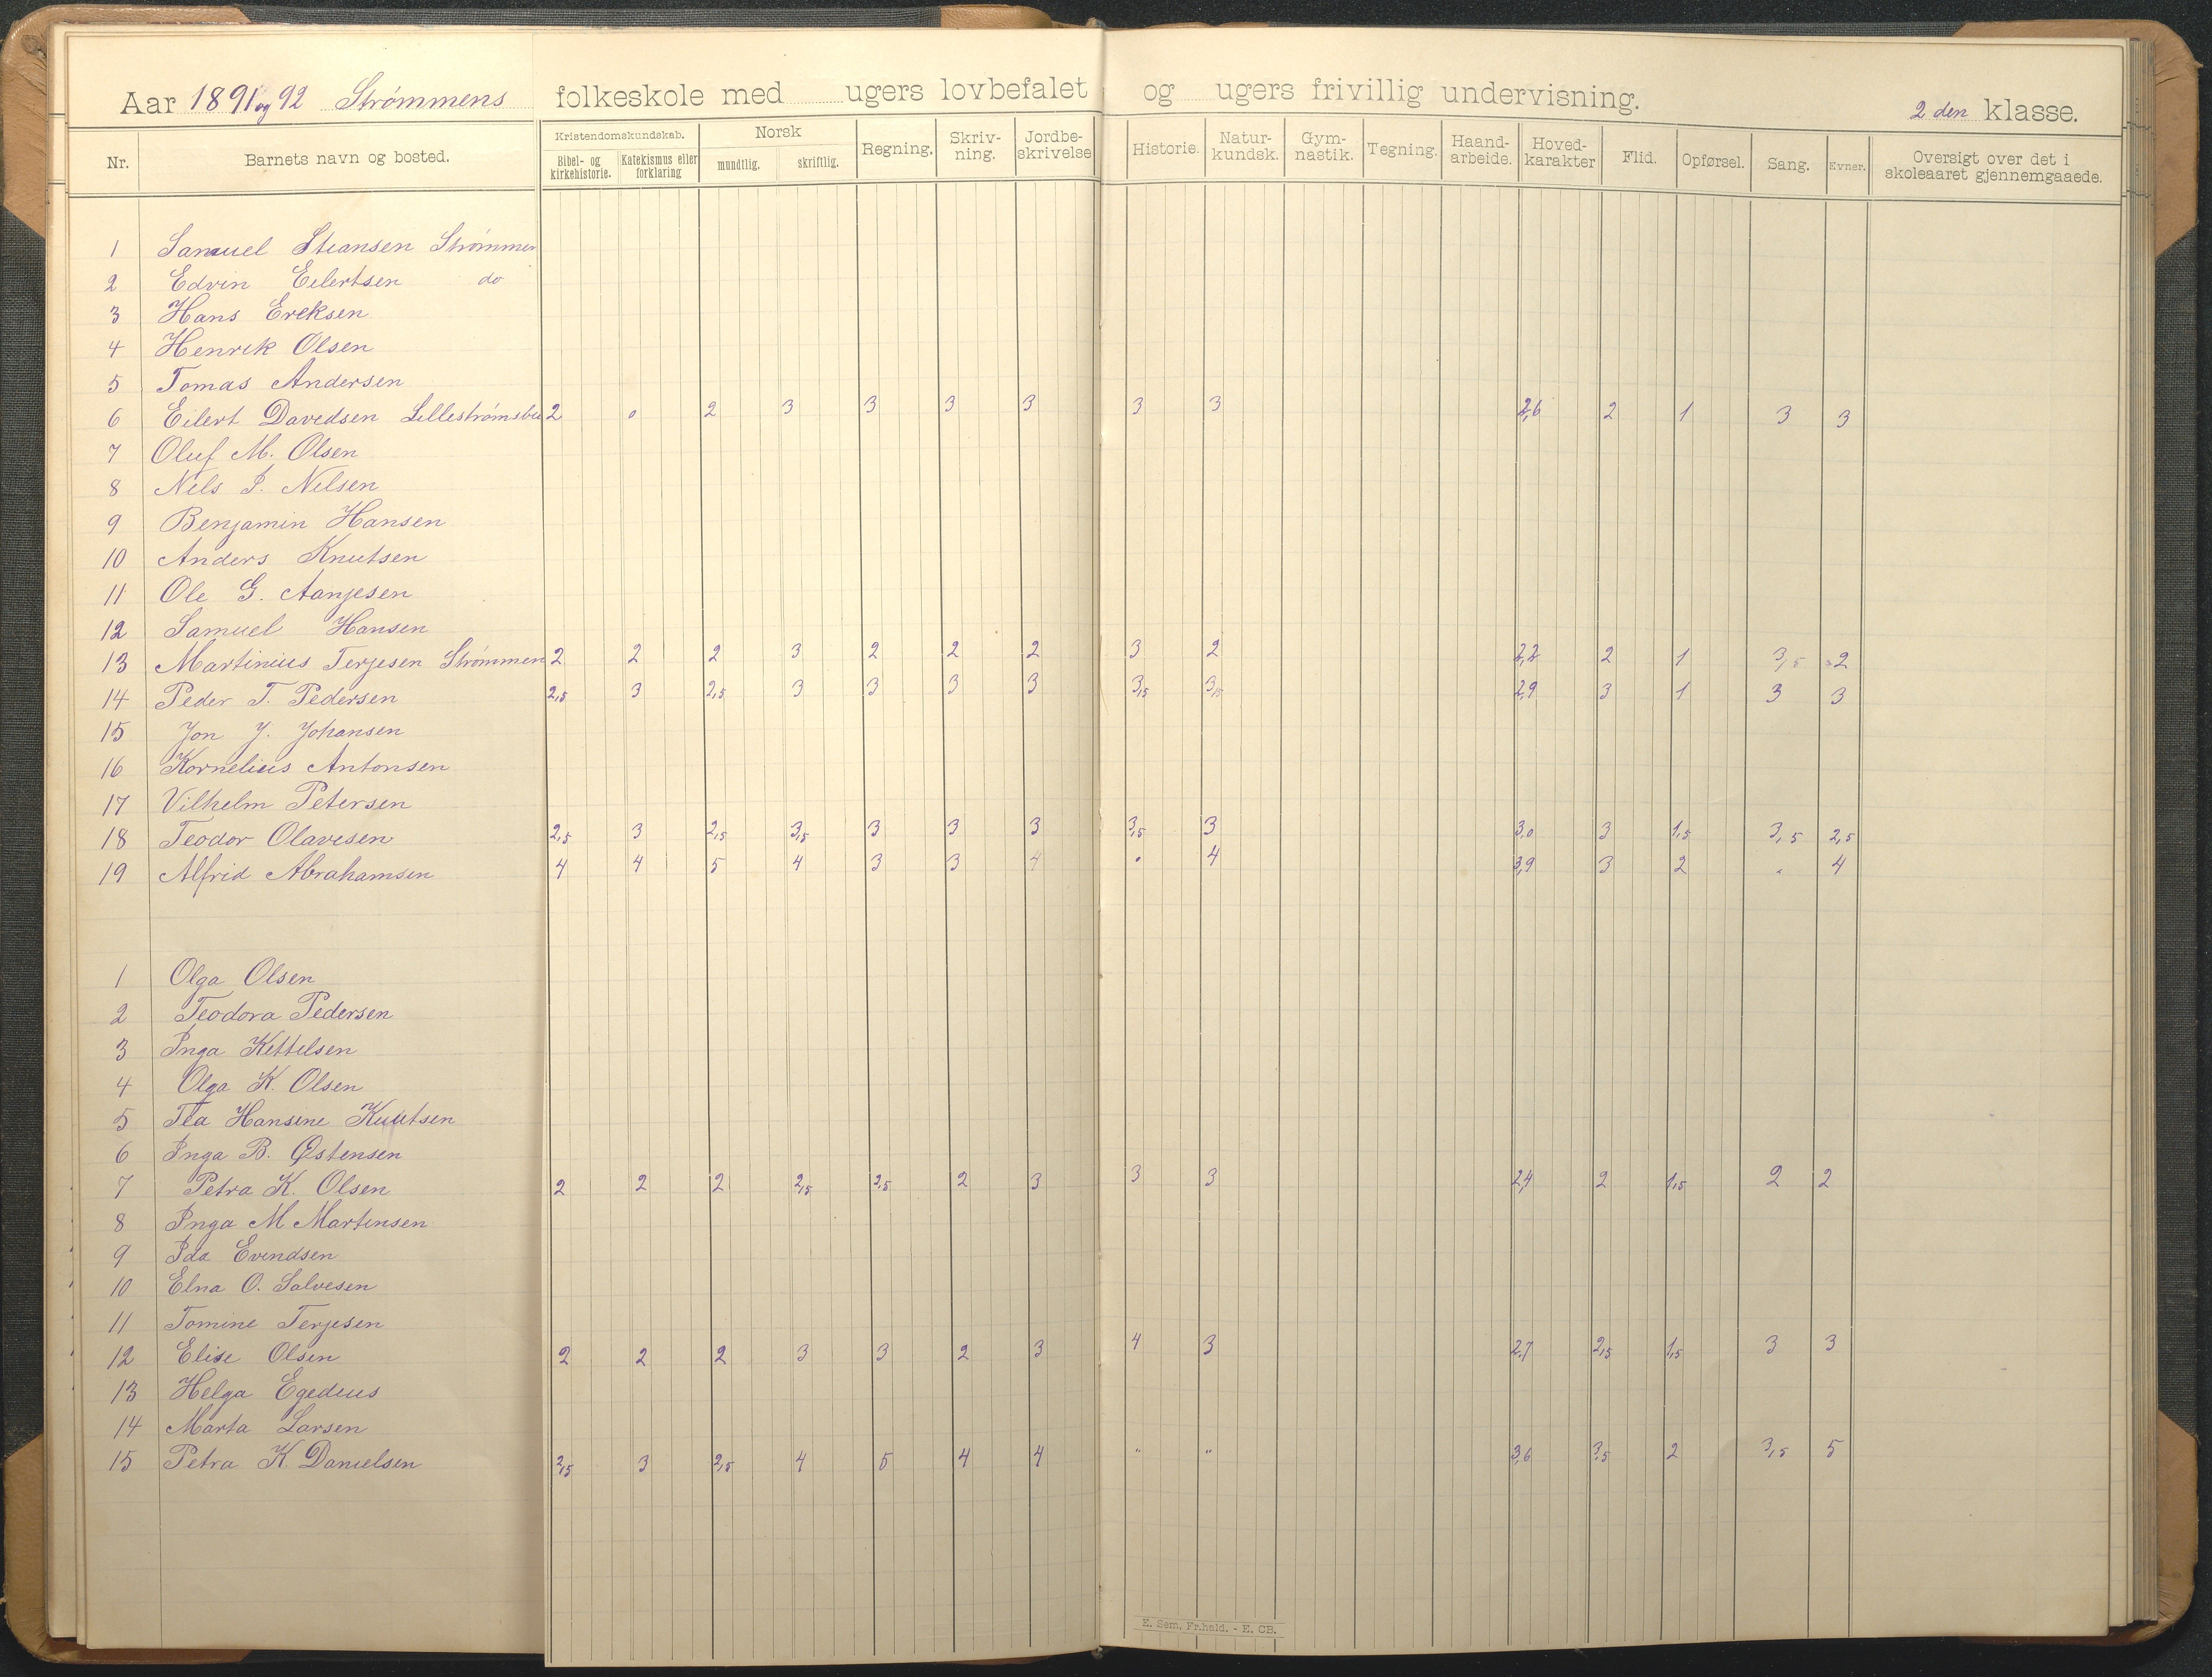 Aar 1891 og 92 Strømmens folkeskole med ugers lovbefalet og ugers frivillig undervisning. 2 den klasse.
Nr. Barnets navn og bosted. Kristendomskundskab. Bibel- og kirkehistorie. Katekismus eller forklaring Norsk mundtlig. skriftlig. Regning. Skriv-ning. Jordbe-skrivelse Historie. Natur-kundsk. Gym-nastik. Tegning. Haand-arbeide. Hoved-karakter Flid. Opførsel. Sang. Evner. Oversigt over det i skoleaaret gjennemgaaede.
1 Samuel Stiansen Strømmen
2 Edvin Eilertsen do
3 Hans Ereksen
4 Henrik Olsen
5 Tomas Andersen
6 Eilert Davedsen Lillestrømsbu 2 0 2 3 3 3 3 3 3 2,6 2 1 3 3
7 Oluf M. Olsen
8 Nels J. Nelsen
9 Benjamin Hansen
10 Anders Knutsen
11 Ole G. Aanjesen
12 Samuel Hansen
13 Martinius Terjesen Strømmen 2 2 2 3 2 2 2 3 2 2,2 2 1 3,5 2
14 Peder T. Pedersen 2,5 3 2,5 3 3 3 3 3,5 3,5 2,9 3 1 3 3
15 Jon J. Johansen
16 Kornelius Antonsen
17 Vilhelm Petersen
18 Teodor Olavesen 2,5 3 2,5 3,5 3 3 3 3,5 3 3,0 3 1,5 3,5 2,5
19 Alfrid Abrahamsen 4 4 5 4 3 3 4 " 4 3,9 3 2 " 4
1 Olga Olsen
2 Teodora Pedersen
3 Inga Kettelsen
4 Olga K. Olsen
5 Tea Hansine Knutsen
6 Inga B. Østensen
7 Petra K. Olsen 2 2 2 2,5 2,5 2 3 3 3 2,4 2 1,5 2 2
8 Inga M Martensen
9 Ida Evendsen
10 Elna O. Salvesen
11 Tomine Terjesen
12 Elise Olsen 2 2 2 3 3 2 3 4 3 2,7 2,5 1,5 3 3
13 Helga Egedius
14 Marta Larsen
15 Petra K. Danielsen 2,5 3 2,5 4 5 4 4 " " 3,6 3,5 2 3,5 5
E. Sem, Fr.hald. - E. CB.